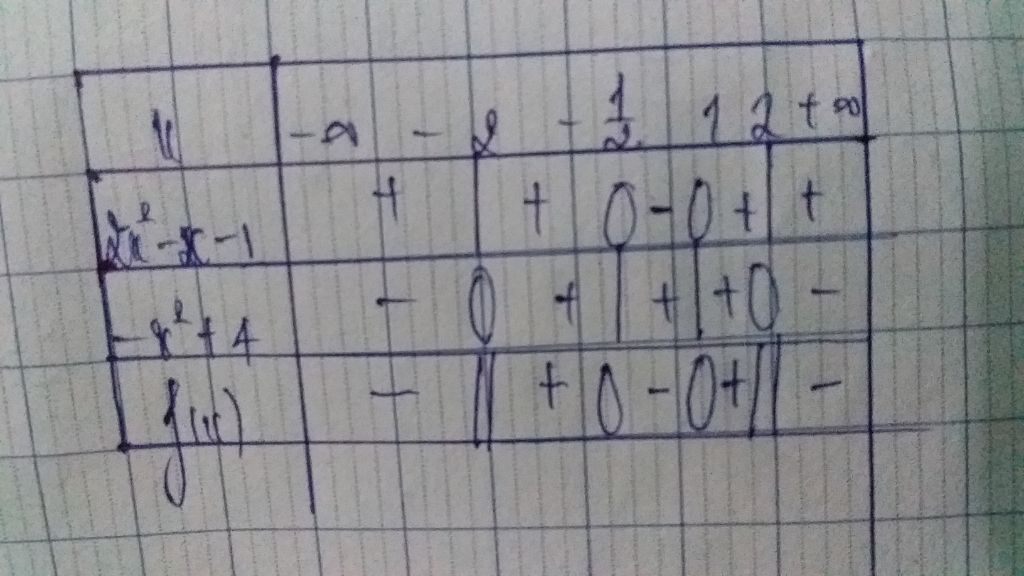 x -∞ -2 -1/2 1 2 +∞
2x²-x-1 + | + 0 - 0 + | +
-x²+4 - 0 + | + | + 0 -
f(x) - || + 0 - 0 + || -